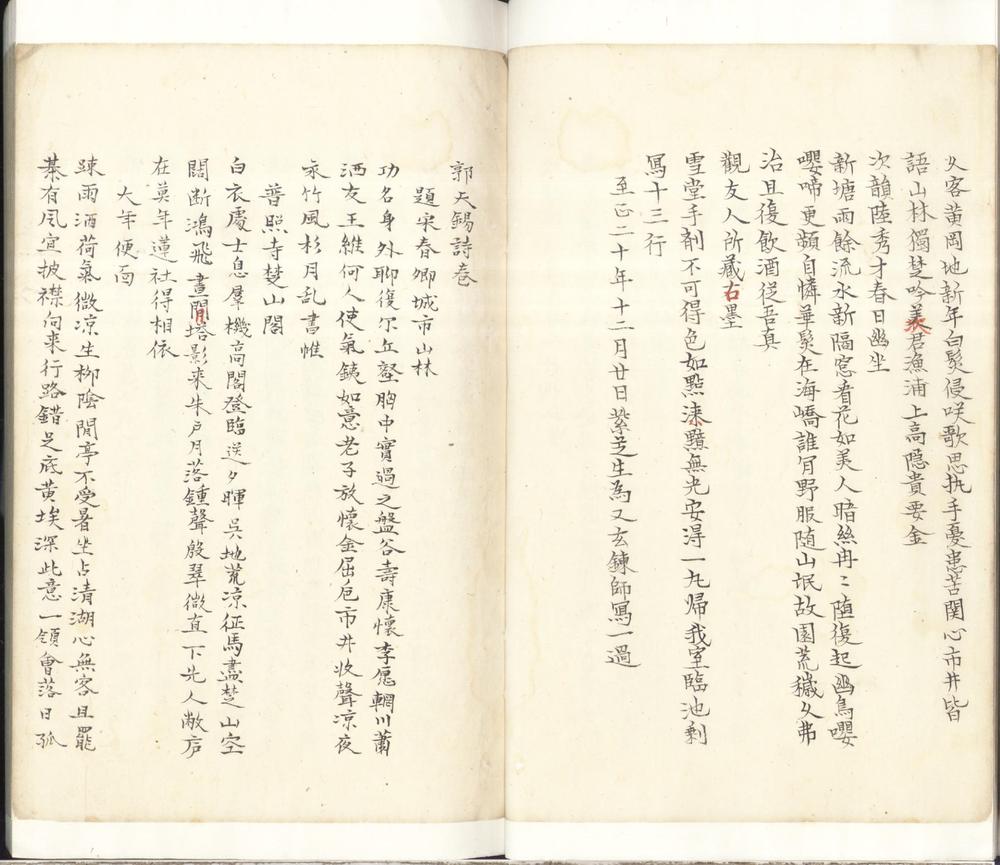 久客黄岡地新年白髮侵咲歌思執手憂患苦関心市井皆
語山林獨楚吟美君漁浦上高隠貴要金
次韻陸秀才春日幽坐
新塘雨餘流水新隔窓看花如美人暗絲冉〻随復起幽鳥嚶
嚶啼更頻自憐華髮在海嶠誰肎野服随山氓故園荒穢久弗
治且復飲酒従吾真
觀友人所藏古墨
雪堂手剤不可得色如點漆黯無光安淂一丸帰我室臨池剩
寫十三行
至正二十年十二月廿日紫芝生為又玄錬師寫一過
郭天錫詩卷
題宋春卿城市山林
功名身外聊復尔丘壑胸中實過之盤谷壽康懷李愿輞川蕭
洒友王維何人使氣銕如意老子放懷金屈巵市井收聲凉夜
永竹風杉月乱書帷
普照寺楚山閣
白衣處士息羣機高閣登臨送夕暉呉地荒凉征馬盡楚山空
闊断鴻飛晝閒塔影来朱戸月落鍾聲殷翠微直下先人敝庐
在莫年蓮社得相依
大年便面
踈雨洒荷氣微凉生栁隂閒亭不受暑坐占清湖心無客且罷
棊有風宜披襟向来行路錯足底黄埃深此意一領會落日孤